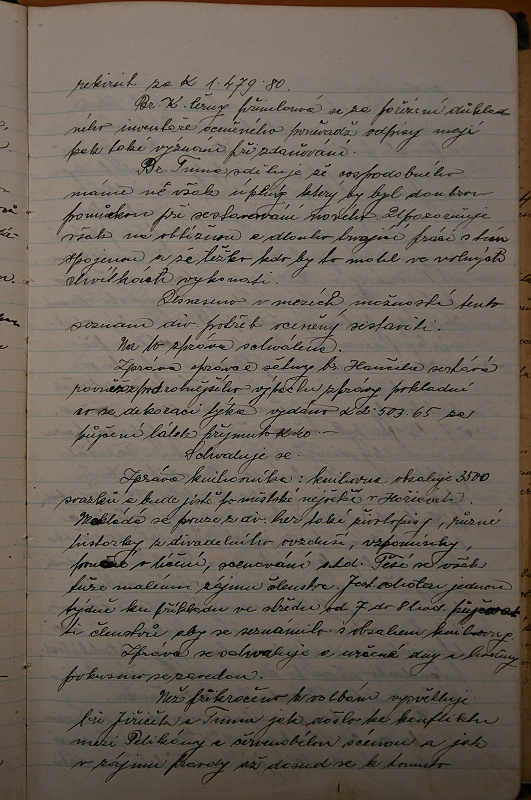 rekvisit za K 1.479.80.
Br. K. Černý přimlouvá se za pořízení důklad
ného inventáře oceněného poněvadž odpisy mají
pak také význam při zdaňování.
Br. Tuma sděluje že cos podobného
máme ne však úplný který by byl dobrou
pomůckou při sestavování nového. Upozorňuje
však na obtížnou a dlouho trvající práci s tím
spojenou a že těžko kdo by to mohl ve volných
chvilkách vykonati.
Usneseno v mezích možnosti tento
seznam div. potřeb oceněný sestaviti.
Na to zpráva schválena.
Zpráva správce šatny br.
rovněž podrobnějšího výpočtu zprávy pokladní
co se dekorací týká vydáno K 2.503.65 za
půjčení látek přijmuto K 40.-
Schvaluje se.
Zpráva knihovníka: knihovna obsahuje 3500
svazků a bude jistě po městské největší v Hořicích.
se pouze z div. her také životopisy, různé
historky z divadelního ovzduší, vzpomínky,
o líčení, scenování atd. Těší se však
malému zájmu členstva. Jest ochoten jednou
týdně ku příkladu ve středu od 7 do 8 hod.
ti členstvu aby se seznámilo s obsahem knihovny.
Zpráva se schvaluje a určené dny a hodiny
pokusmo se zavedou.
Než přikročeno k volbám vysvětluji
bři Jiřička a Tuma jak došlo ke konfliktu
mezi Pelikány a červenobílou scénou a jak
v zájmu pravdy až dosud se k tomuto